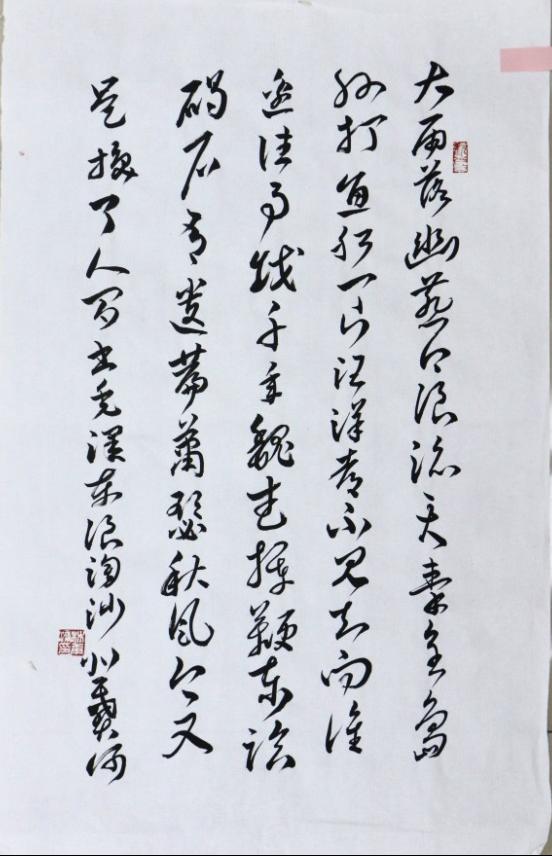 大雨落幽燕白浪滔天秦皇岛
外打鱼船一片汪洋都不见知向谁
边往事越千年魏武挥鞭东临
碣石有遗篇萧瑟秋风今又
是换了人间书毛泽东浪淘沙北戴河